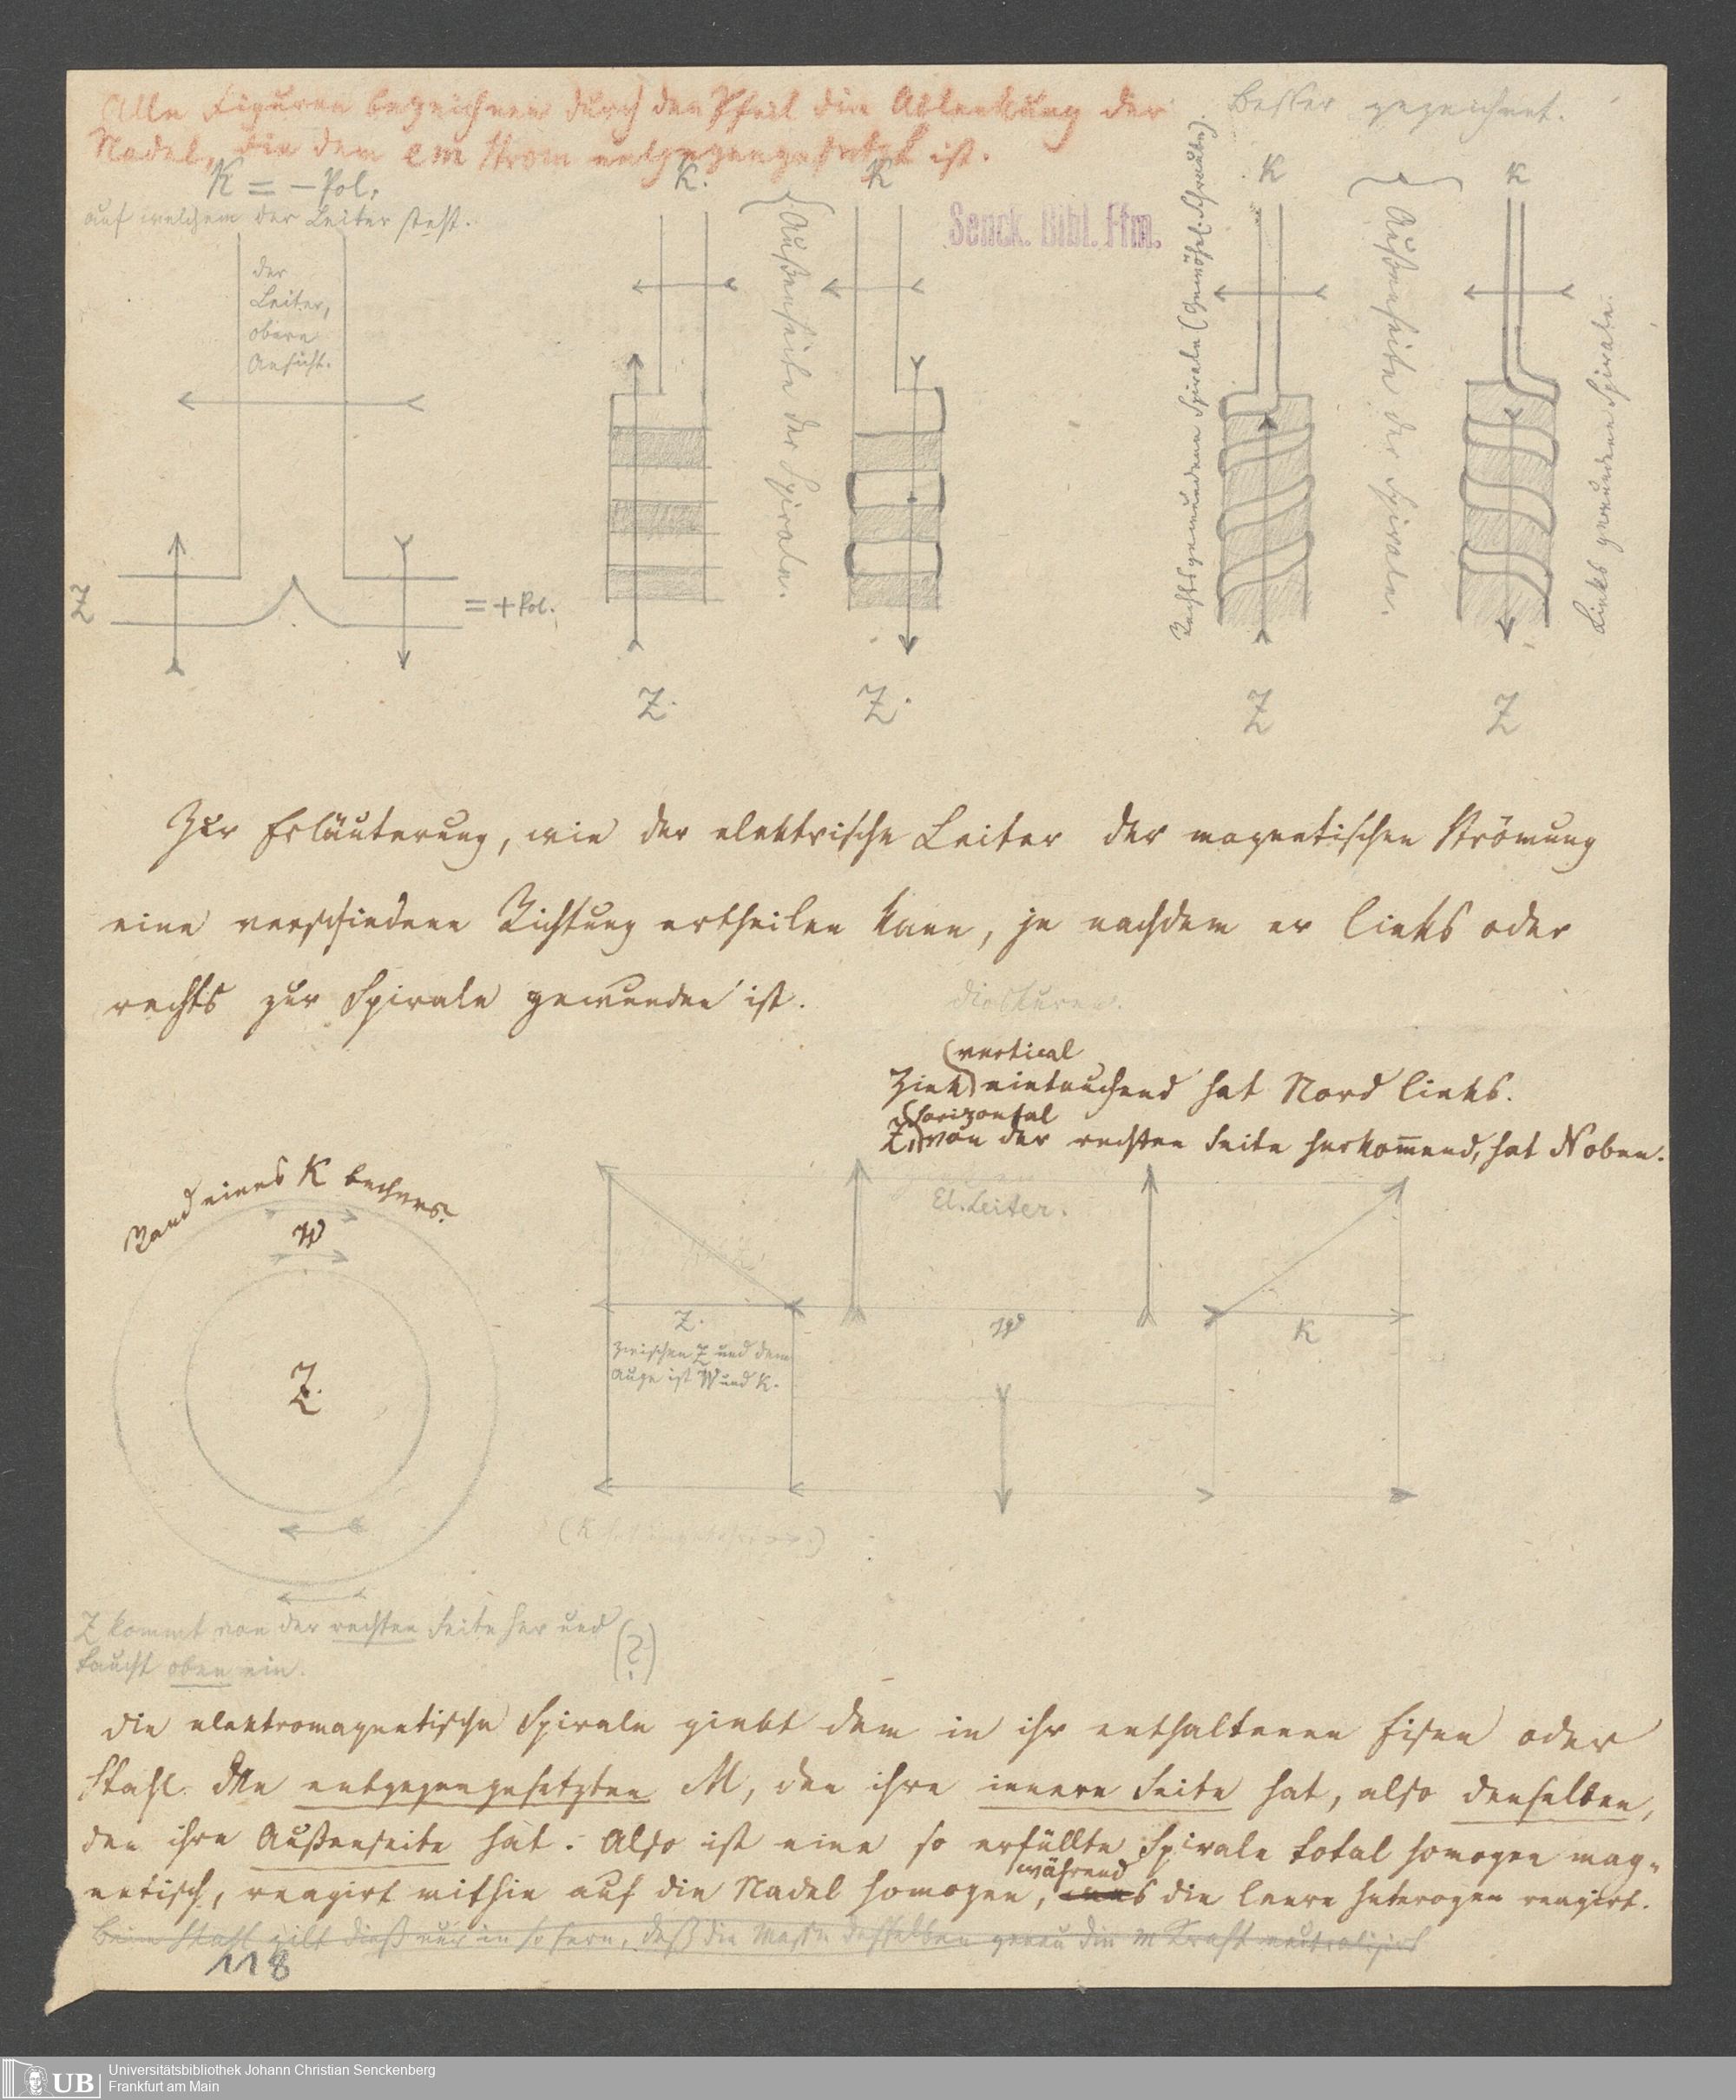 Alle Figuren bezeichnen durch den Pfeil die Ablenkung der
Nadel, die dem em Strom entgegengesetzt ist.
Besser gezeichnet.
K = – Pol,
auf welchem der Leiter steht.
der
Leiter,
obere
Ansicht.
Z
= + Pol.
K.
K
Außenseite der Spirale.
Z.
Z.
Senck. Bibl. Ffm.
K
K
Rechtsgewundene Spirale (Gewöhnl. Schraube).
Außenseite der Spirale.
Links gewundene Spirale.
Z
Z
Zur Erläuterung, wie der elektrische Leiter der magnetischen Strömung
eine verschiedene Richtung ertheilen kann, je nachdem er links oder
rechts zur Spirale gewunden ist.
(vertical
Zink) eintauchend hat Nord links.
(horizontal
Z,) von der rechten Seite herkom̅end, hat N oben.
Rand eines K bechers.
W
Z.
El. Leiter.
Z.
W
K
Zwischen Z und dem
Auge ist W und K.
Z kommt von der rechten Seite her und
taucht oben ein.
(?)
Die elektromagnetische Spirale giebt dem in ihr enthaltenen Eisen oder
Stahl den entgegengesetzten M, den ihre innere Seite hat, also denselben,
den ihre Außenseite hat. Also ist eine so erfüllte Spirale total homogen mag-
während
netisch, reagirt mithin auf die Nadel homogen, die leere heterogen reagirt.
Beim Stahl gilt dieß nur in so fern, daß die Masse desselben genau die m Kraft neutralisirt
118
UB
Universitätsbibliothek Johann Christian Senckenberg
Frankfurt am Main